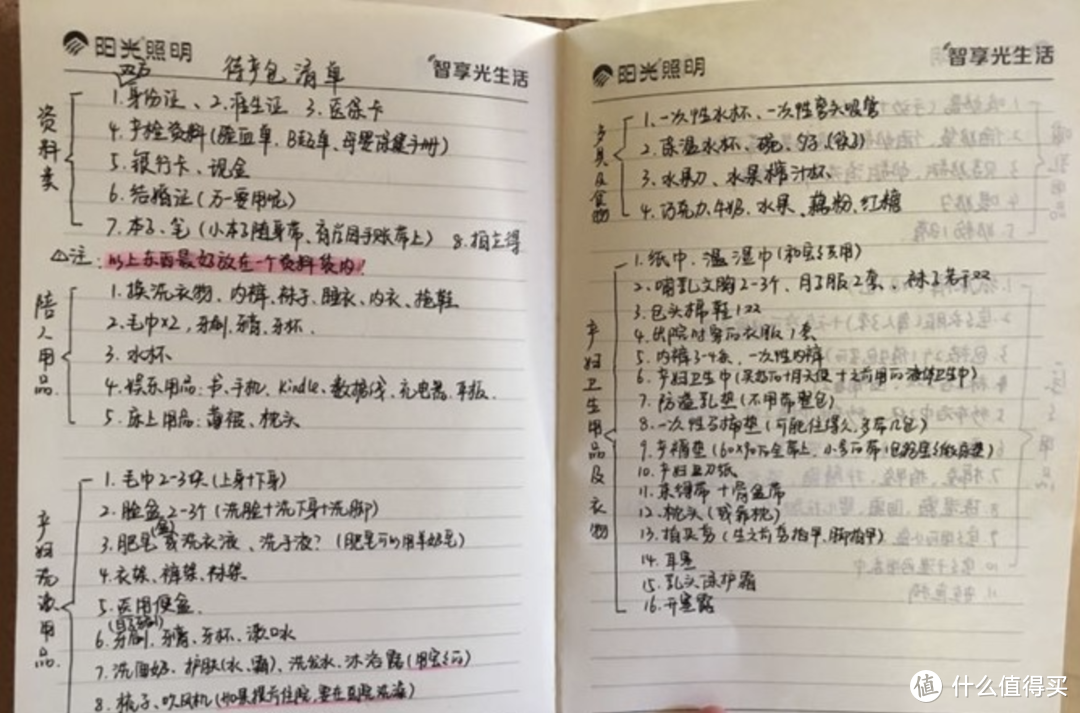 阳光照明
智享光生活
待产包清单
资料类
1.身份证、2.准生证 3.医保卡
4.产检资料(验血单、B超单、母婴保健手册)
5.银行卡、现金
6.结婚证(万一要用呢)
7.本子、笔(小本子随身带、
△注:以上东西最好放在一个资料袋内!
陪人用品
1.换洗衣物、内裤、袜子、睡衣、内衣、拖鞋
2.毛巾×2,牙刷、牙膏、牙杯.
3.水杯
4.娱乐用品:书、手机、Kindle、数据线、充电器、平板.
5.床上用品:薄被、枕头
产妇洗漱用品
1.毛巾2-3块(上身+下身)
2.脸盆2-3个(洗脸+洗下身+洗脚)
3.肥皂(盒)或洗衣液、洗手液?(肥皂可以用羊奶皂)
4.衣架、裤架、袜架
5.医用便盆.
6.牙刷、牙膏、牙杯、漱口水
7.洗面奶、护肤(水、霜)、洗发水、沐浴露
8.梳子、吹风机(如果提前住院,要在医院洗澡)
阳光照明
智享光生活
1.一次性水杯、一次性弯头吸管
2.保温水杯、碗、勺子、
3.水果刀、水果榨汁杯、
4.巧克力、牛奶、水果、藕粉、红糖
产妇卫生用品及衣物
1.纸巾、湿巾
2.哺乳文胸2-3个、月子服2套、袜子若干双
3.包头棉鞋1双
4.出院时穿的衣服1套
5.内裤3-4条、一次性内裤
6.产妇卫生巾
7.防溢乳垫(不用带整包)
8.一次性马桶垫(可能住得久,多带几包)
9.产褥垫
10.产妇卫刀纸
11.束缚带+骨盆带
12.枕头(或靠枕)
13.指甲剪(生之前剪指甲、脚指甲)
14.耳塞
15.乳头保护霜
16.开塞露
值 什么值得买